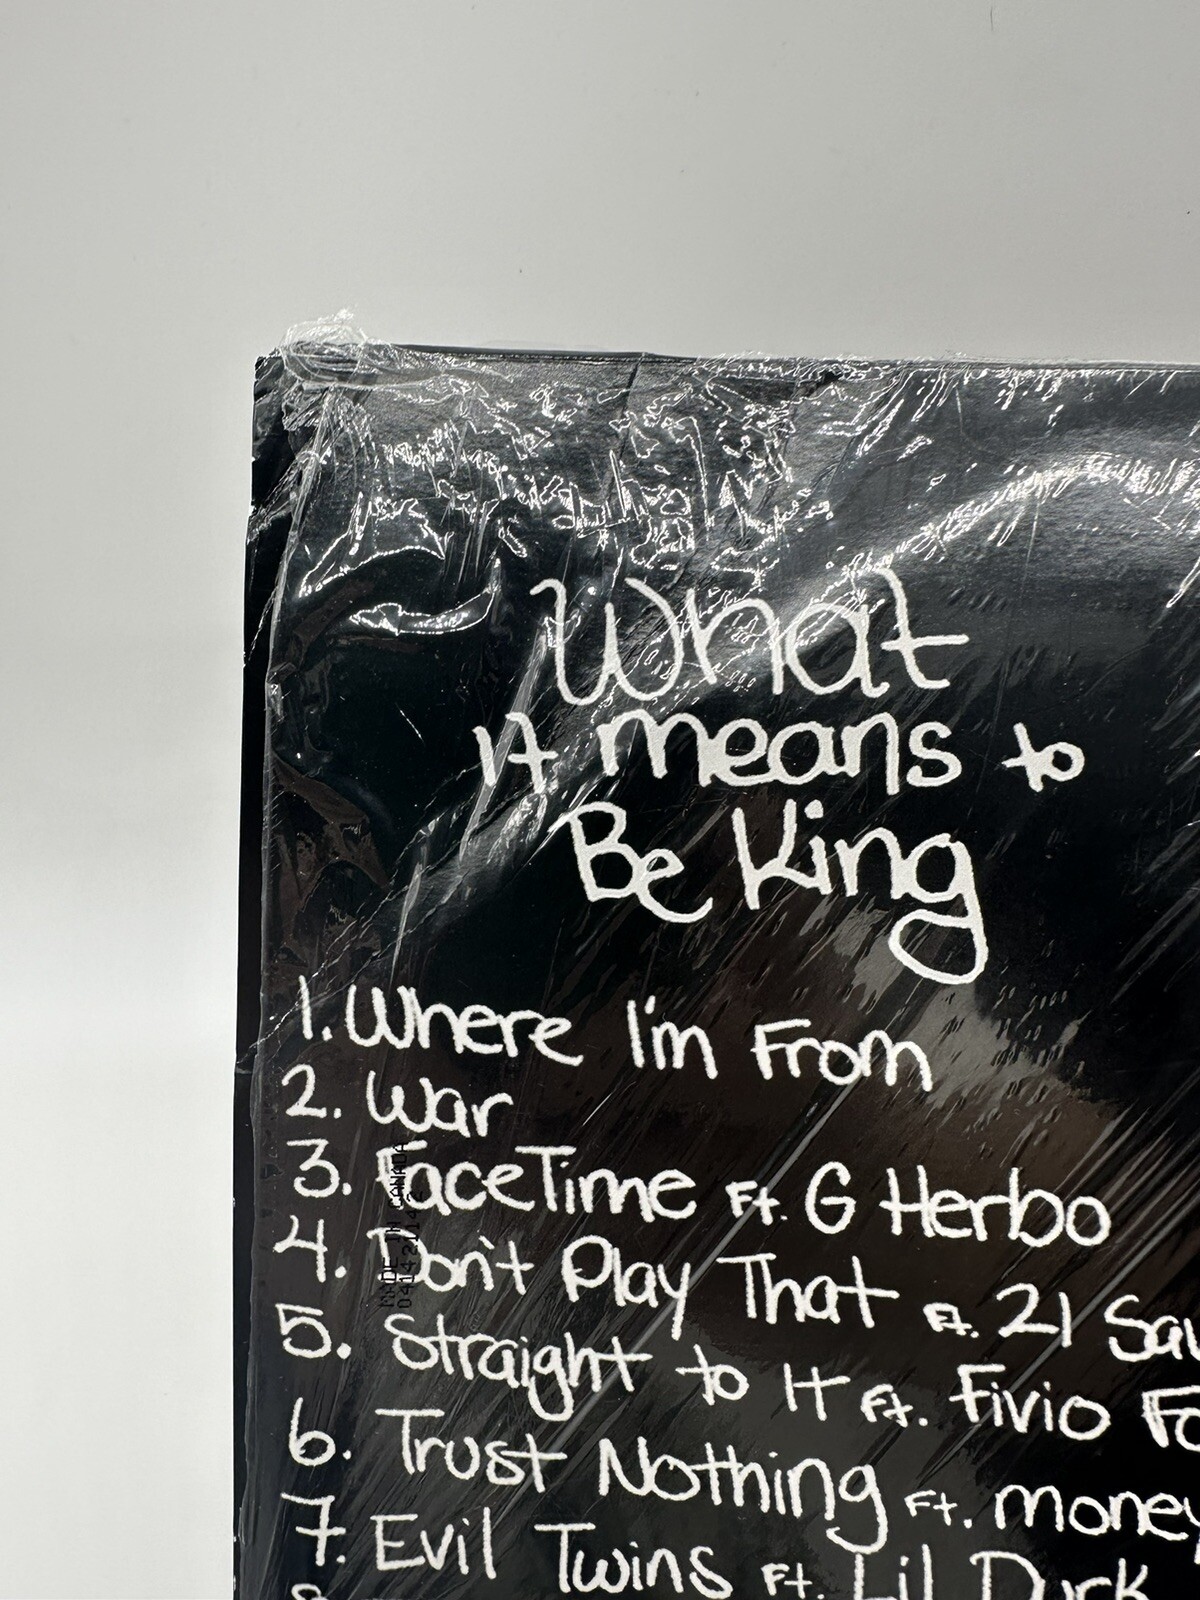 What
It means to
Be King
1. Where I'm From
2. War
3. FaceTime Ft. G Herbo
4. Don't Play That Ft. 21 Sav
5. Straight to It Ft. Fivio Fo
6. Trust Nothing Ft. Money
7. Evil Twins Ft. Lil Durk
MADE IN CANADA